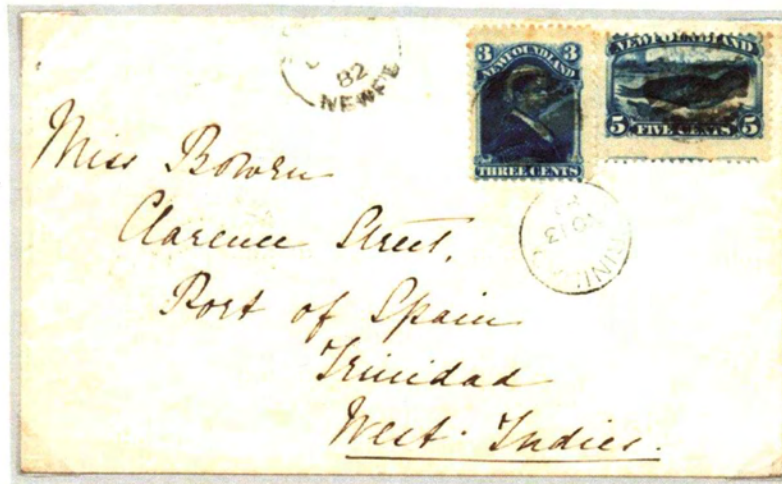 82
NEWF'D
3 3
NEWFOUNDLAND
THREE CENTS
NEWFOUNDLAND
5 FIVE CENTS 5
Miss Bowen
Clarence Street,
Port of Spain
Trinidad
West Indies.